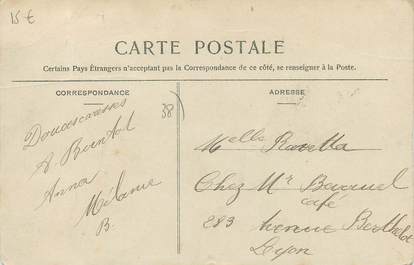 15 €
CARTE POSTALE
Certains Pays Étrangers n'acceptant pas la Correspondance de ce côté, se renseigner à la Poste.
CORRESPONDANCE
ADRESSE
38
Douces caresses
A. Buntol
Anna
Mélanie
B.
Melle Ravella
Chez Mr
Café
283 Avenue Berthelot
Lyon